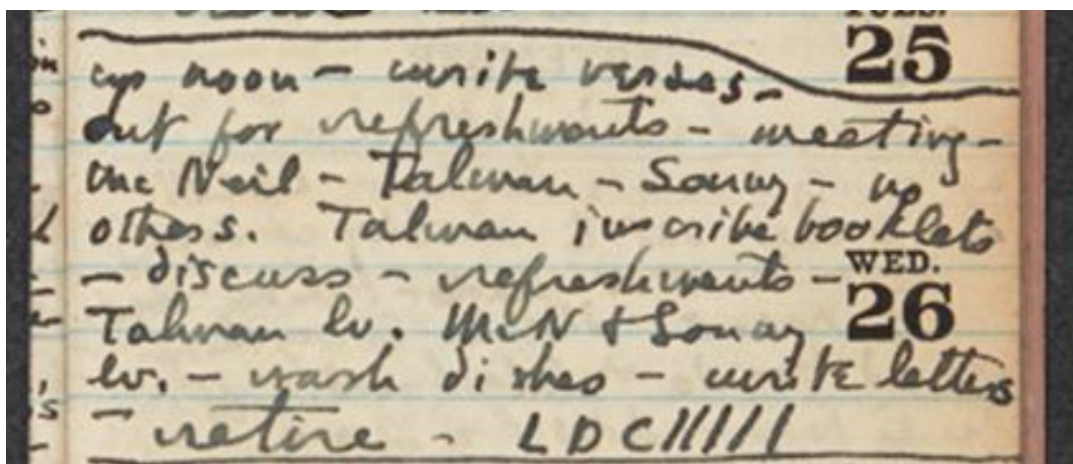 TUES.
25
up noon - write verses -
out for refreshments - meeting -
Mc Neil - Talman - Sonay - no
others. Talman inscribe booklets
- discuss - refreshments -
WED.
26
Talman lv. McN + Sonay
lv. - wash dishes - write letters
- retire - LDC/////